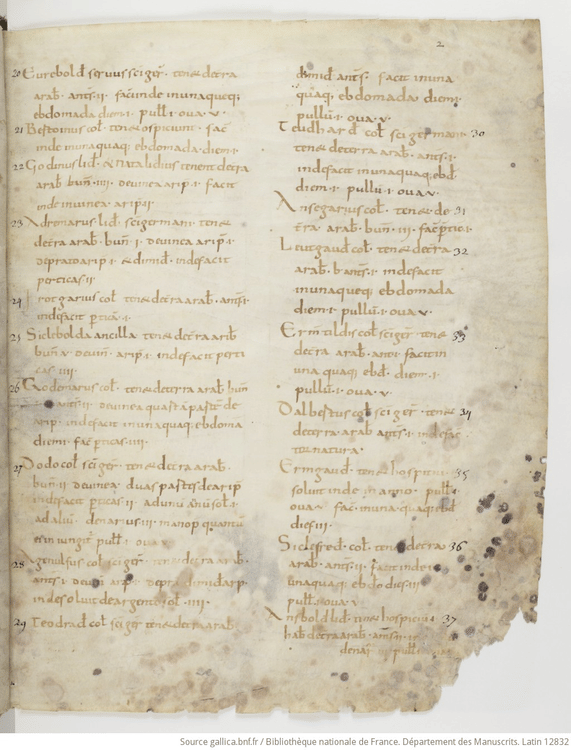 2
20 Eurebold seruus sci ger̄. tenet de tr̄a
arab̄. ants. ii. facit inde in unaquaq;
ebdomada diem. i. pull. i. oua. v.
21 Bestoinus col̄. tenet ospicium. i. fac̄
inde in unaquaq; ebdomada diem. i.
22 Godinus lid̄. & natalidius tenent de tr̄a
arab̄ bun̄. iiii. de uinea arip̄. i. facit
inde in uinea arip̄. ii
23 Adremarus lid̄. sci germani tenet
de tr̄a arab̄. bun̄. i. de uinea arip̄. i.
de prato arip̄. i. & dimid̄. inde facit
perticas. ii
24 Frotgarius col̄. tenet de tr̄a arab̄. antn̄. i.
inde facit p̄tica. i.
25 Siclebolda ancilla tenet de tr̄a arib̄
bun̄. v. de uin̄. arip̄. i. inde facit perti
cas. iiii.
26 Teodemarus col̄. tenet de terra arab̄ bun̄
ants. ii. de uinea quarta parte de
arip̄. inde facit in unaquaq; ebdoma
diem. i. fac̄ p̄ticas. iiii.
27 Dodo col̄. sci ger̄. tenet de tr̄a arab̄.
bun̄. ii. de uinea. duas partes de arip̄
inde facit p̄ticas. ii. ad unū sol̄. i.
ad aliū. denarios. iii. manop̄ quantū
ei iniungit̄. pull̄. i. oua. v
28 Agenulfus col̄. sci ger̄. tenet de tr̄a arab̄.
ants. i. de uin̄. arip̄. i. de prato dimid̄ arp̄.
inde soluit de argento sol̄. iiii.
29 Teodrad col̄ sci ger̄ tenet de tr̄a arab̄
dimid̄ ants. facit in una
quaq; ebdomada diem. i.
pullū. i. oua. v.
Teudhard col̄ sci ger mani. 30
tenet de terra arab̄. ants. i.
inde facit in unaquaq; ebd̄.
diem. i. pullū. i. oua. v.
Ansegarius col̄. tenet de 31
tr̄a. arab̄. bun̄. iii. fac̄ p̄tic. i.
Leutgaud col̄. tenet de tr̄a 32
arab̄. b̄ ants. i. inde facit
in unaqueq; ebdomada
diem. i. pullū. i. oua. v.
Ermtildis col̄ sci ger̄. tenet 33
de tr̄a arab̄. ant. i. facit in
una quaq; ebd̄. diem. i.
pullū. i. oua. v.
Dalbertus col̄ sci ger̄. tenet 34
de terra arab̄ ants. i. inde fac̄
Ermgaud. tenet hospiciū. 35
soluit inde in anno. pull̄. i.
oua. v. fac̄. in una quaq; ebd̄
dies iii.
Siclefred. col̄. tenet de tr̄a 36
arab̄. ants. ii. facit inde i
unaquaq; ebd̄o dies iii
pull. i. oua. v
Ansbold lid̄. tenet hospiciū. 37
hab̄ de tr̄a arab̄. ants. ii.
denar̄ pull
Source gallica.bnf.fr / Bibliothèque nationale de France. Département des Manuscrits. Latin 12832